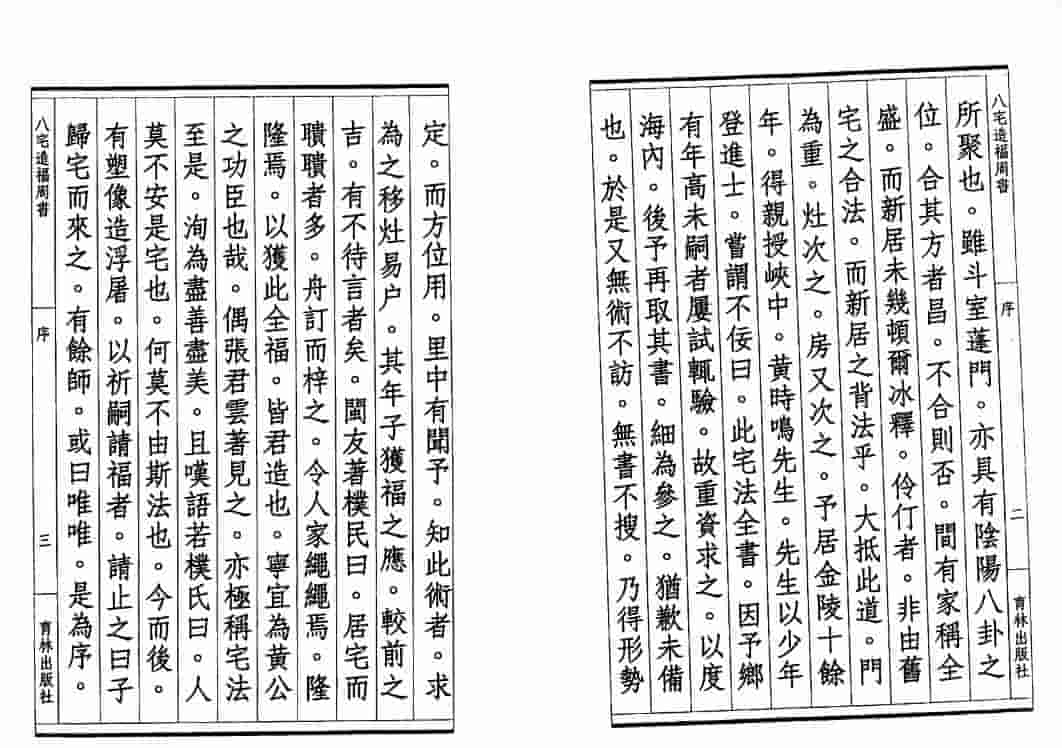 八宅造福周書
序
二
育林出版社
所聚也。雖斗室蓬門。亦具有陰陽八卦之
位。合其方者昌。不合則否。間有家稱全
盛。而新居未幾頓爾冰釋。伶仃者。非由舊
宅之合法。而新居之背法乎。大抵此道。門
為重。灶次之。房又次之。予居金陵十餘
年。得親授峽中。黃時鳴先生。先生以少年
登進士。嘗謂不佞曰。此宅法全書。因予鄉
有年高未嗣者屢試輒驗。故重資求之。以度
海內。後予再取其書。細為參之。猶歉未備
也。於是又無術不訪。無書不搜。乃得形勢
定。而方位用。里中有聞予。知此術者。求
為之移灶易户。其年子獲福之應。較前之
吉。有不待言者矣。閩友著樸民曰。居宅而
聵聵者多。舟訂而梓之。令人家繩繩焉。隆
隆焉。以獲此全福。皆君造也。寧宜為黃公
之功臣也哉。偶張君雲著見之。亦極稱宅法
至是。洵為盡善盡美。且嘆語若樸氏曰。人
莫不安是宅也。何莫不由斯法也。今而後。
有塑像造浮屠。以祈嗣請福者。請止之曰子
歸宅而來之。有餘師。或曰唯唯。是為序。
八宅造福周書
序
三
育林出版社